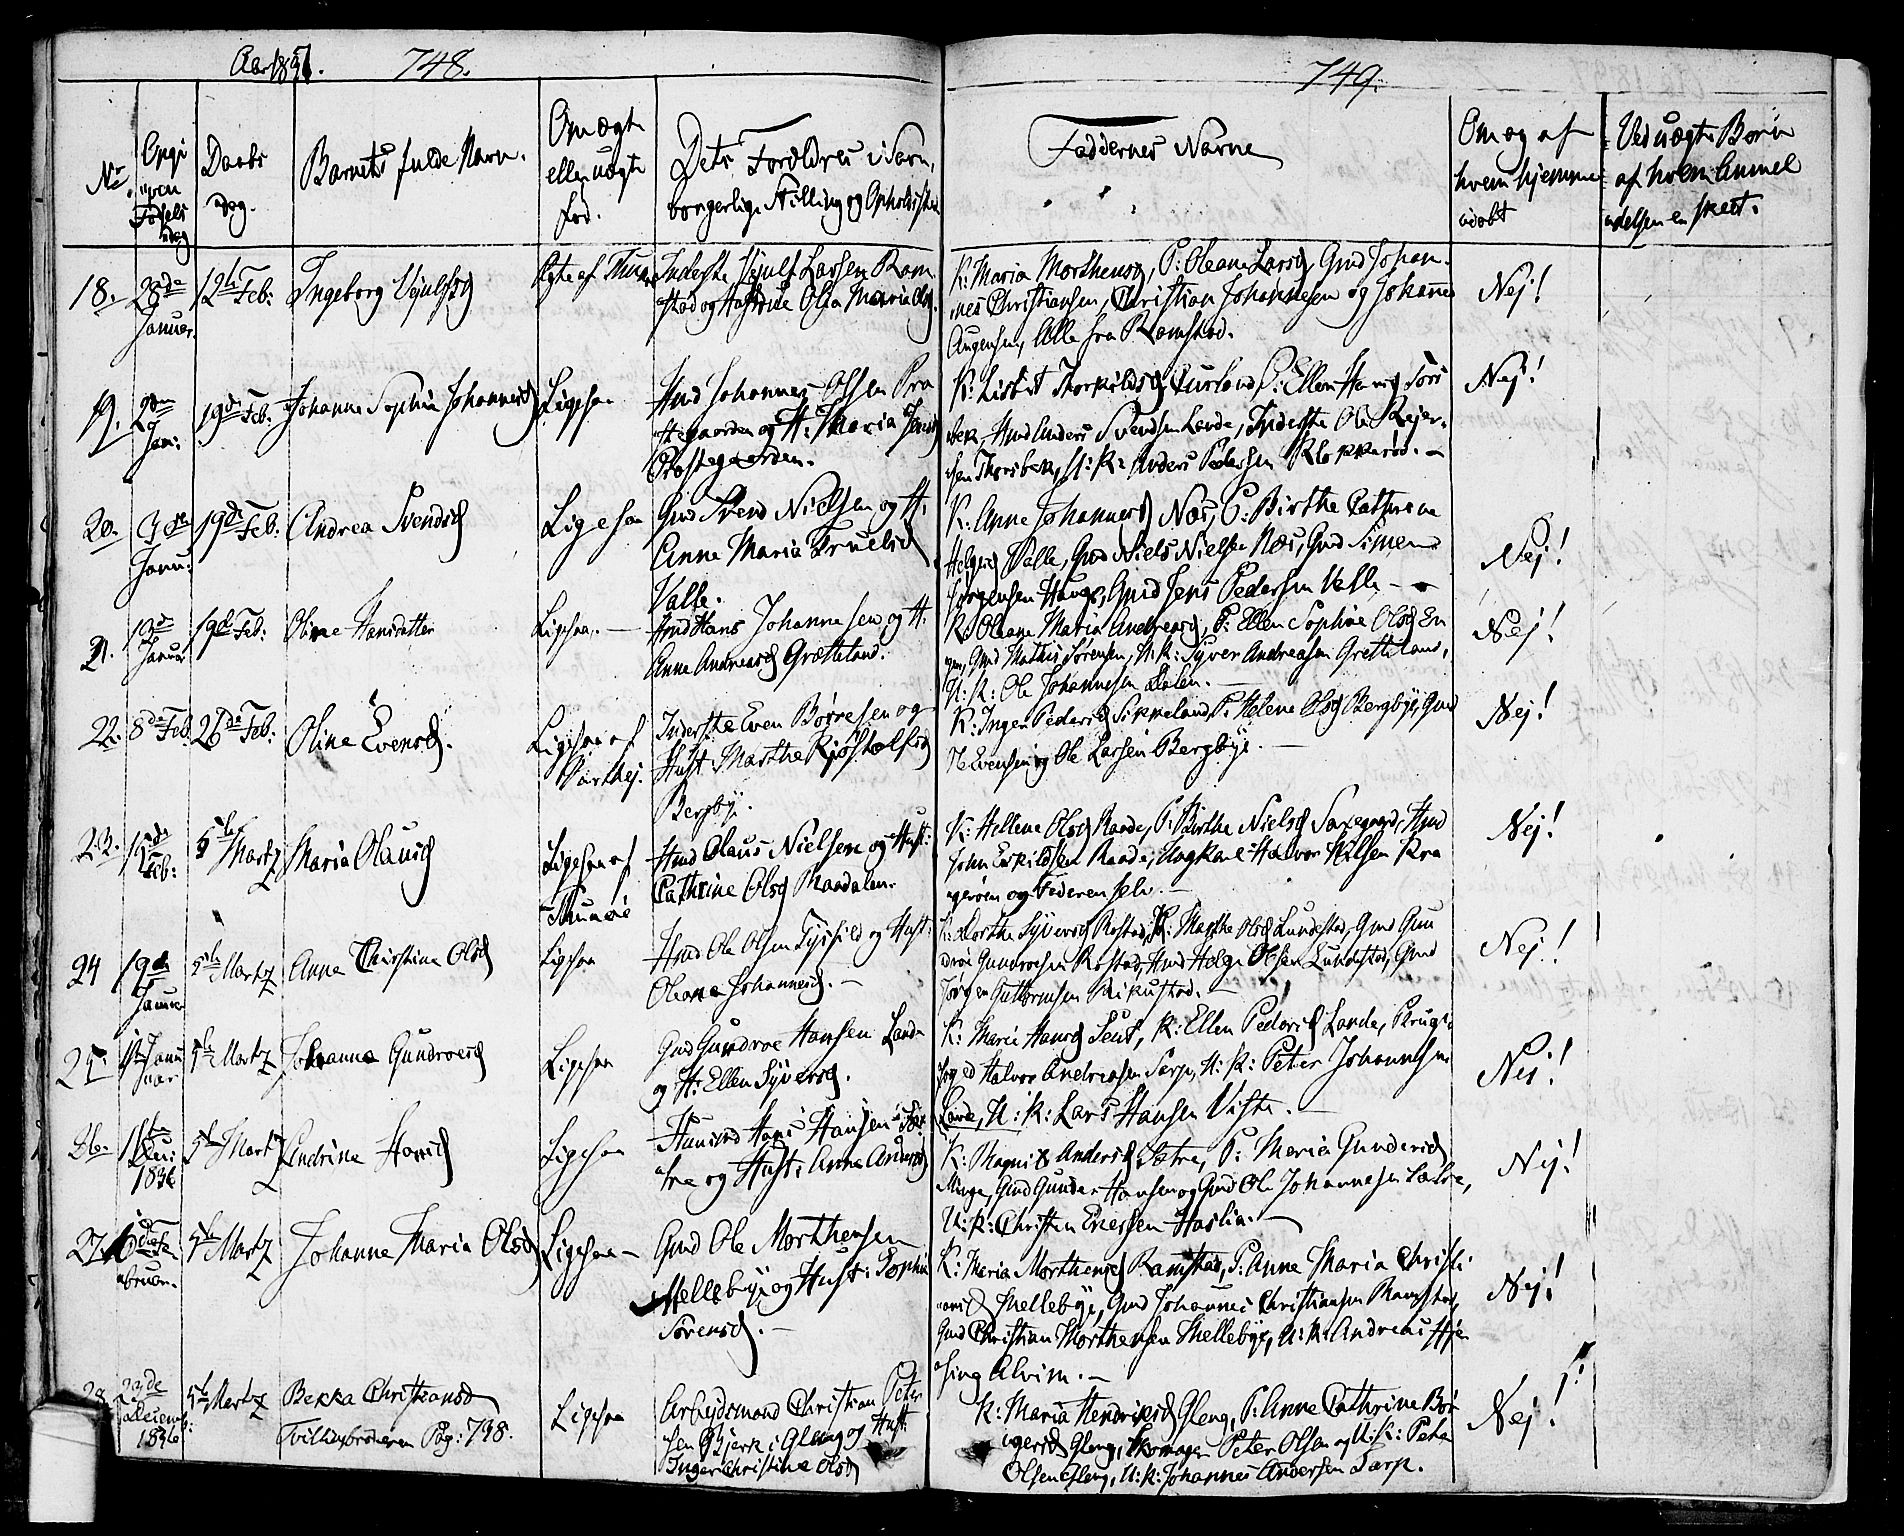 Aar 1837. 748.
749.
No
Opgi
Fødsels
dag
Daabs
dag.
Barnets fulde Navn.
Om ægte
eller uægte
fød.
Dets Forældres Navn,
borgerlige Stilling og Opholdsted
Faddernes Navne
Om og af
hvem hjemme
døbt
Ved uægte Børn
af hvem Anmel
delsen er skeet.
18.
28de
Januar.
12te Feb:
Ingeborg
Ægte af Thune
Inderste Larsen Ram
stad og Hustrue Olea Maria Olsd.
K: Maria Morthensd, P: Oleane Larsd, Gmd Johan-
nes Christiansen, Christian Johannesen og Johannes
Augensen, Alle fra Ramstad.
Nej!
19.
2den
Jan:
19de Feb:
Johanne Sophie Johannesd
Ligesaa
Hmd Johannes Olsen Pro
stegaarden og H: Maria Jensd
Prostegaarden.
K: Lisbet Thorkildsd P: Ellen Hansd Tors
bek, Hmd Anders Svendsen Lande, Inderste Ole Rejer-
sen Thorsbek, U: K: Anders Pedersen Klokkerød. –
Nej!
20.
3de
Janu:
19de Feb:
Andrea Svendsd
Ligesaa
Gmd Svend Nielsen og H.
Anne Maria Truelsd
Valle.
K: Anne Johannesd Næs, P: Birthe Cathrena
Helgesd Valle, Gmd Niels Nielsen Næs, Gmd Simen
Jørgensen Hauge, Gmd Jens Pedersen Valle –
Nej!
21.
13de
Januar
19de Feb:
Oline Hansdatter
Ligesaa. –
Hmd Hans Johannesen og H.
Anne Andreasd Gretteland.
K: Oleane Maria Andreasd, P: Ellen Sophie Olsd En
gen, Gmd Mathis Sørensen, U: K: Syver Andreasen Gretteland,
U: K: Ole Johannesen Dalen. –
Nej!
22.
8de Feb.
26de Feb:
Oline Evensd.
Ligesaa af
Varthej.
Inderste Even Børresen og
Hust Marthe Kjøstelsd
Bergby.
K: Inger Pedersd Sikkeland, P: Helene Olsd Bergbye, Gmd
Evensen og Ole Larsen Bergbye. –
Nej!
23.
15de
Feb:
5te
Martz
Maria Olausd
Ligesaa af
Thune
Hmd Olaus Nielsen og Hust:
Cathrine Olsd Raadalen.
K: Hellene Olsd Raade, P: Birthe Nielsd Saxegaard, Hmd
John Eskildsen Raade, Ungkarl Halvor Nilsen Kra
gerøen og Faderen selv. –
Nej!
24
19de
Januar
5te Martz
Anne Christine Olsd
Ligesaa
Hmd Ole Olsen Tysfild og Hust:
Oleane Johannesd. –
K: Dorthe Syversd Rostad, K: Marthe Olsd Lundestad, Gmd Gun
droe Gundroesen Rostad, Hmd Helge Olsen Lundestad, Gmd
Jørgen Guttormsen Mikustad. –
Nej!
25.
Janu
uar
5te Martz
Johanne Gundroesd
Ligesaa
Gmd Gundroe Hansen Lande
og H: Ellen Syversd.
K: Marie Hansd Seut, K: Ellen Pedersd Lande, Skrugs
foged Halvor Andreasen Sarp, U: K: Peter Johannesen
Lande, U: K: Lars Hansen Viste. –
Nei!
26.
Dec:
1836
5te Martz
Andrine Hansd
Ligesaa
Huusmd Hans Hansen Sæ
tre og Hust: Anne Andersd
K: Magnild Andersd Sætre, P: Maria Gundersd
Minge, Gmd Gunder Hansen og Gmd Ole Johannesen Sætre,
U: K: Christen Enersen Haslia. –
Nej!
27
de Fe
bruar.
5te Martz
Johanne Maria Olsd
Ligesaa –
Gmd Ole Morthensen
Mellebye og Hust: Sophie
Sørensd. –
K: Maria Morthensd Ramstad, P: Anne Maria Christi
ansd Mellebye, Gmd Johannes Christiansen Ramstad,
Gmd Christian Morthensen Mellebye, U: K: Andreas
Alvim. –
Nej!
28
23de
Decemb:
1836
5te Martz
Bekka Christiansd
Tvillingbroderen Pag: 738.
Ligesaa
Arbejdsmand Christian Peter
sen Bjerk i Gleng og Hust
Inger Christine Olsd
K: Maria Hendriksd Gleng, P: Anne Cathrine Bør
gersd Gleng, Skomager Peter Olsen og U: K: Peter
Olsen Gleng, U: K: Johannes Andersen Sarp.
Nej!